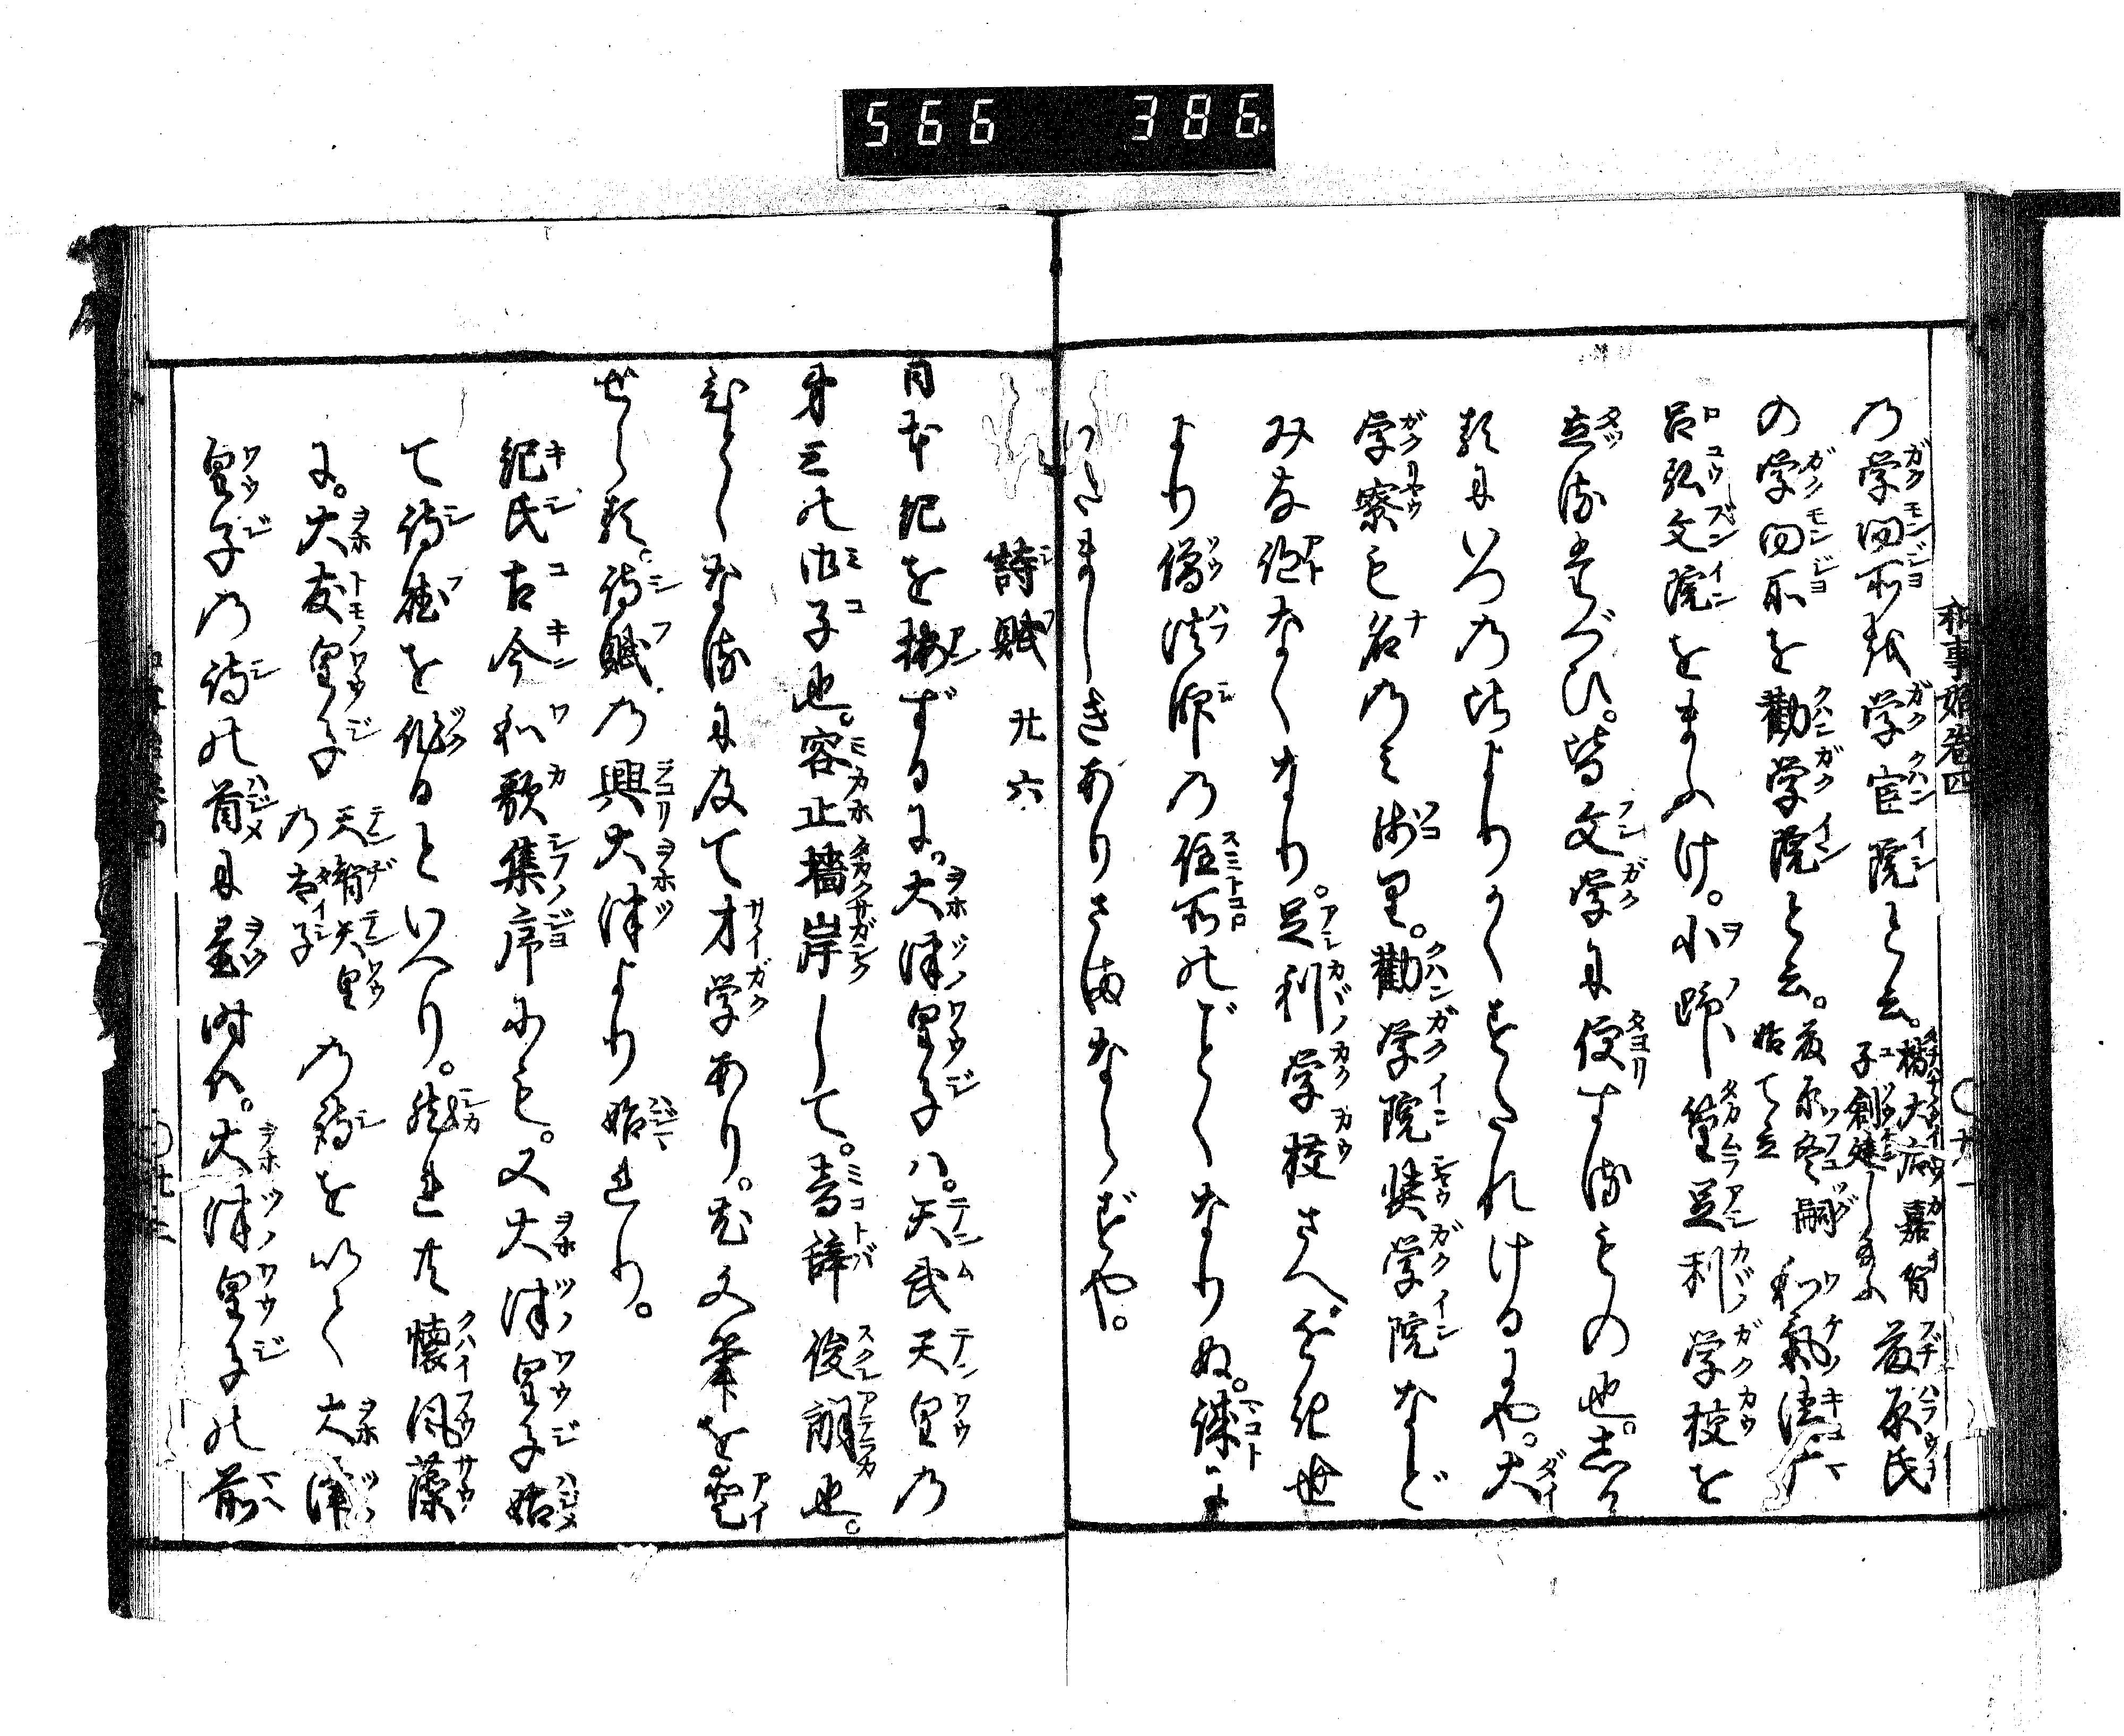 566 386
和事始巻四
の学問所を学官院と云。橘大后嘉智子創建し給ふ 藤原氏
の学問所を勧学院と云。藤原冬嗣始て立 和氣清麻
呂弘文院をまふけ。小野篁足利学校を
立るたぐひ。皆文学に便するもの也。しか
るにいつの比よりかくすたれけるにや。大
学寮も名のみ残里。勧学院奨学院など
みな絶なくなり。足利学校さへ。近き世
より僧法師の住所のごとくなりぬ。誠に
いたましきありさまならずや。
詩賦 廿六
日本紀を按ずるに。大津皇子ハ。天武天皇の
第三の御子也。容止墻岸して。音辞俊朗也。
ひととなるに及て才学あり。尤文筆を愛
せらる。詩賦の興大津より始れり。
紀氏古今和歌集序にも。又大津皇子始
て詩賦を作るといへり。然れ共懐風藻
に。大友皇子 天智天皇の太子 の詩を以て大津
皇子の詩の前に置時ハ。大津皇子の前